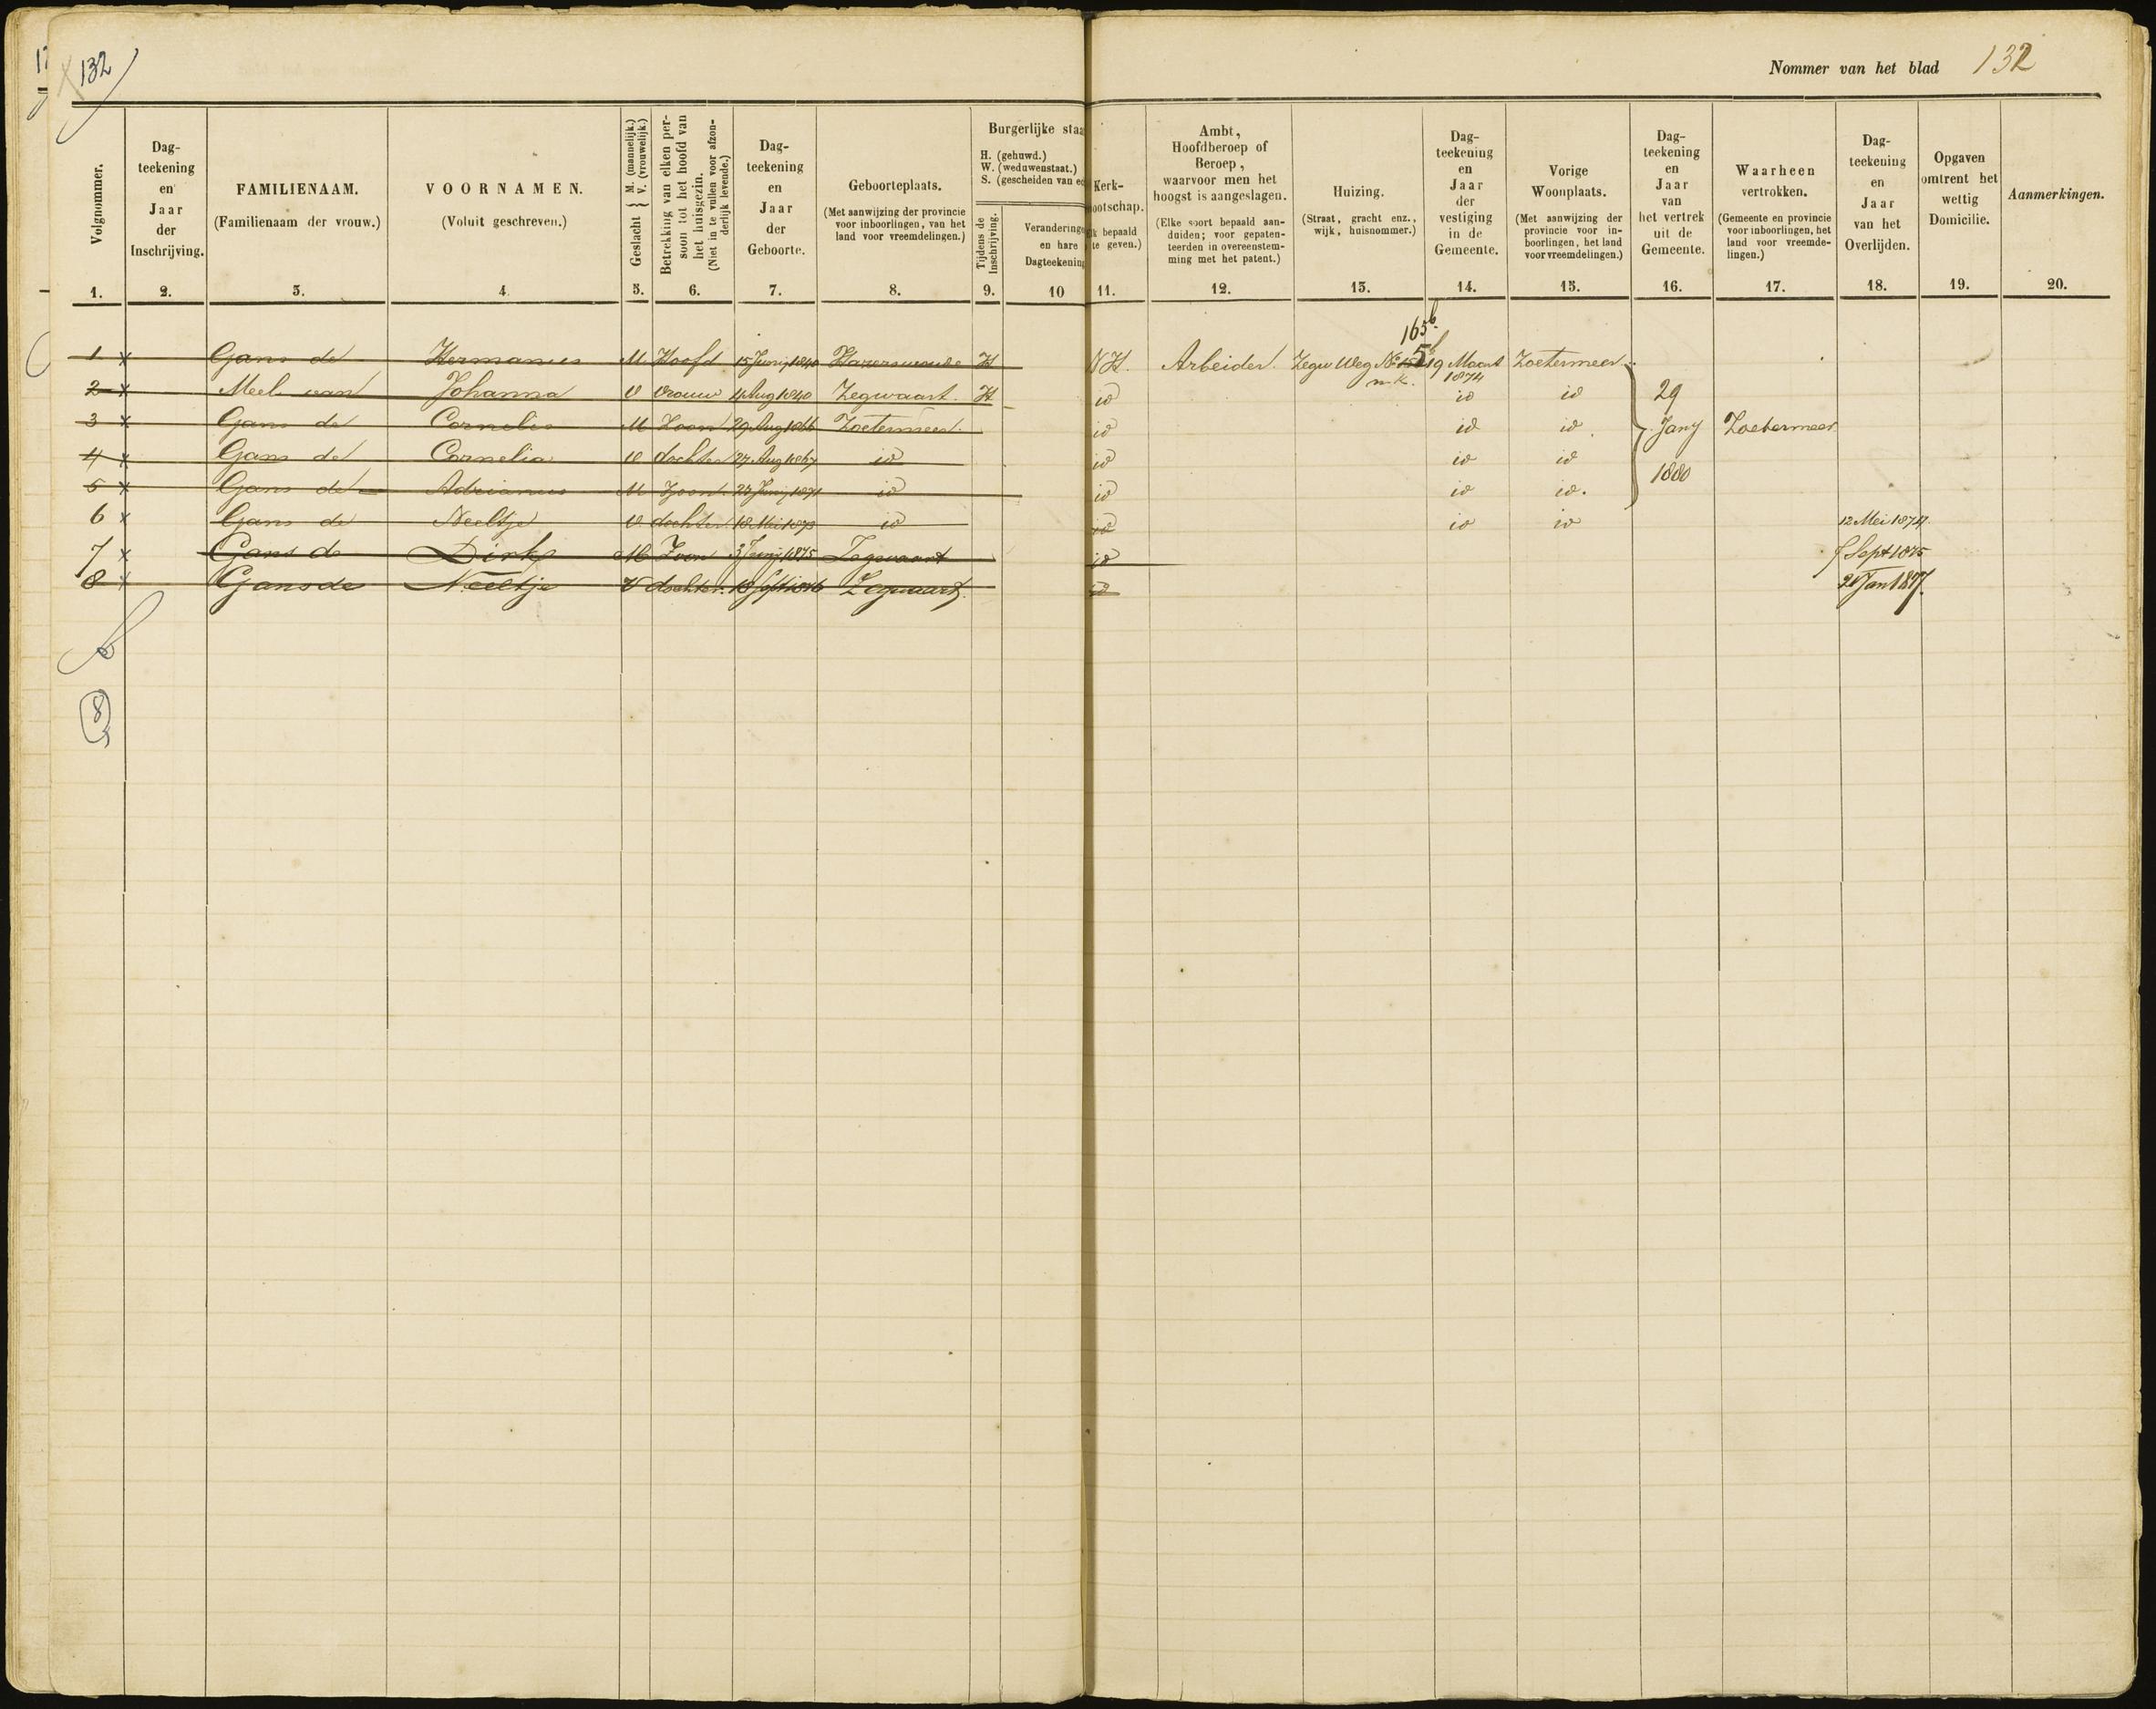 132
Nommer van het blad 132
Volgnommer.
Dag-
teekening
en
Jaar
der
Inschrijving.
FAMILIENAAM.
(Familienaam der vrouw.)
VOORNAMEN.
(Voluit geschreven.)
Geslacht { M. (mannelijk.) V. (vrouwelijk.)
Betrekking van elken per-
soon tot het hoofd van
het huisgezin.
(Niet in te vullen voor afzon-
derlijk levende.)
Dag-
teekening
en
Jaar
der
Geboorte.
Geboorteplaats.
(Met aanwijzing der provincie
voor inboorlingen, van het
land voor vreemdelingen.)
Burgerlijke staa
H. (gehuwd.)
W. (weduwenstaat.)
S. (gescheiden van ec
Tijdens de
Inschrijving.
Verandering
en hare
Dagteekening
Kerk-
ootschap.
k bepaald
te geven.)
Ambt,
Hoofdberoep of
Beroep,
waarvoor men het
hoogst is aangeslagen.
(Elke soort bepaald aan-
duiden; voor gepaten-
teerden in overeenstem-
ming met het patent.)
Huizing.
(Straat, gracht enz.,
wijk, huisnommer.)
Dag-
teekening
en
Jaar
der
vestiging
in de
Gemeente.
Vorige
Woonplaats.
(Met aanwijzing der
provincie voor in-
boorlingen, het land
voor vreemdelingen.)
Dag-
teekening
en
Jaar
van
het vertrek
uit de
Gemeente.
Waarheen
vertrokken.
(Gemeente en provincie
voor inboorlingen, het
land voor vreemde-
lingen.)
Dag-
teekening
en
Jaar
van het
Overlijden.
Opgaven
omtrent het
wettig
Domicilie.
Aanmerkingen.
1. 2. 3. 4. 5. 6. 7. 8. 9. 10 11. 12. 13. 14. 15. 16. 17. 18. 19. 20.
165b
1 x Gans de Hermanus M Hoofd 15 Junij 1840 Hazerswoude H NH. Arbeider. Zegw Weg No 19 Maart 1874 Zoetermeer
2 x Meel van Johanna V Vrouw 4 Aug 1840 Zegwaart. H id id id
3 x Gans de Cornelis M Zoon 29 Aug 1866 Zoetermeer. id id id
4 x Gans de Cornelia V dochter 27 Aug 1867 id id id id
5 x Gans de Adrianus M Zoon 23 Junij 1871 id id id id.
29
Jany
1880
Zoetermeer
6 x Gans de Neeltje V. dochter 18 Mei 1873 id id id id 12 Mei 1874.
7 x Gans de Dirk M Zoon 3 Junij 1875 Zegwaart id Sept 1875
8 x Gans de Neeltje V dochter. 18 Sept 1876 Zegwaart. id Jan 1877.
8